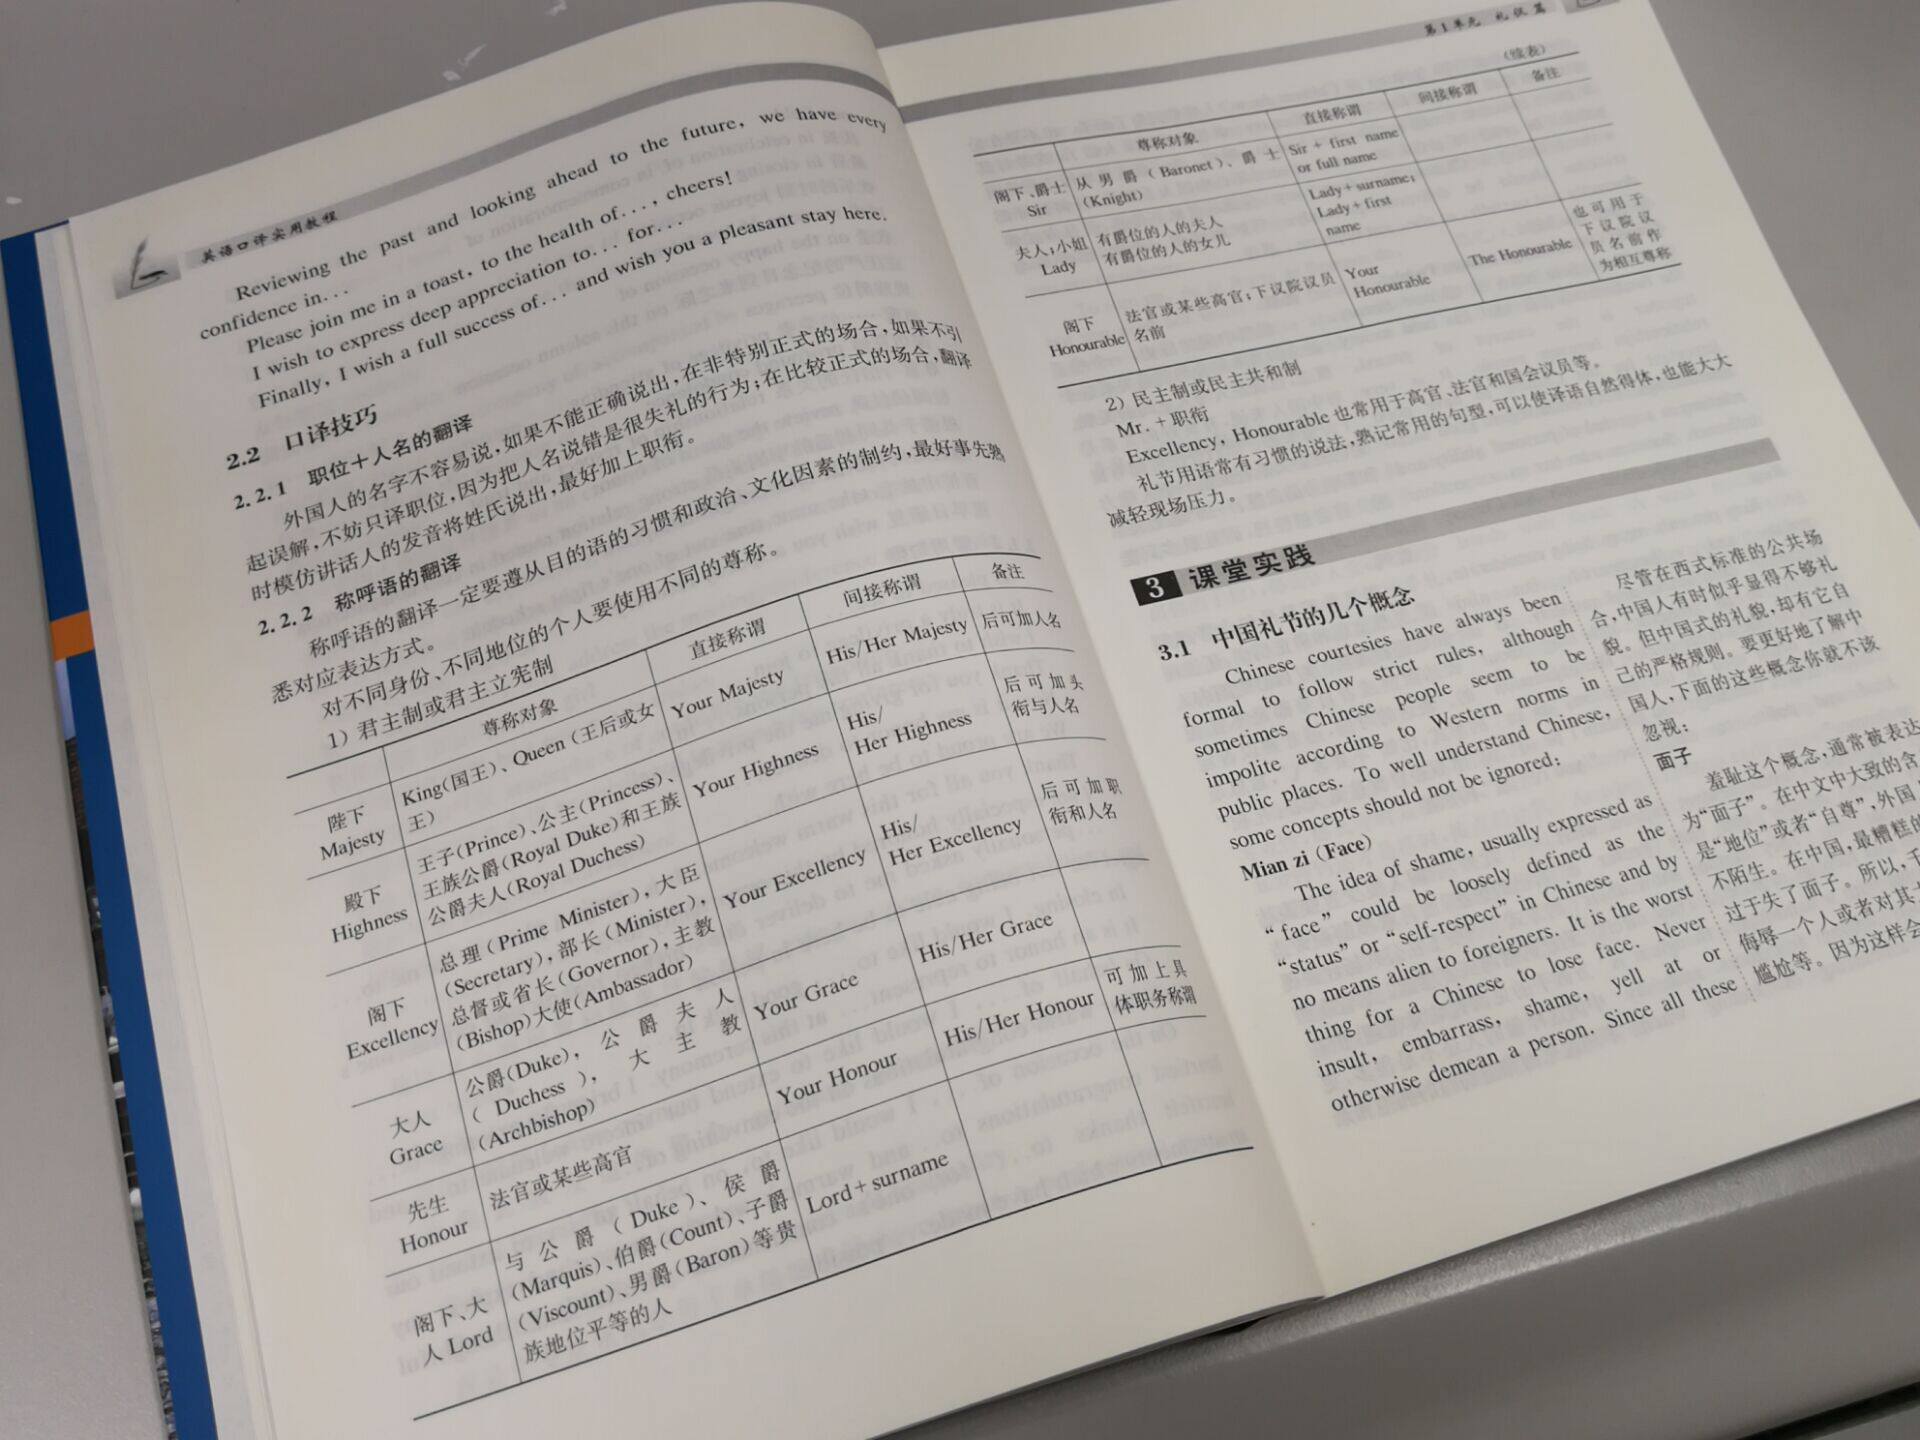 英语口译实用教程
Reviewing the past and looking ahead to the future, we have every
confidence in...
Please join me in a toast, to the health of..., cheers!
I wish to express deep appreciation to... for...
Finally, I wish a full success of... and wish you a pleasant stay here.
2.2 口译技巧
2.2.1 职位+人名的翻译
外国人的名字不容易说,如果不能正确说出,在非特别正式的场合,如果不引
起误解,不妨只译职位,因为把人名说错是很失礼的行为;在比较正式的场合,翻译
时模仿讲话人的发音将姓氏说出,最好加上职衔。
2.2.2 称呼语的翻译
称呼语的翻译一定要遵从目的语的习惯和政治、文化因素的制约,最好事先熟
悉对应表达方式。
对不同身份、不同地位的个人要使用不同的尊称。
1) 君主制或君主立宪制
尊称对象 直接称谓 间接称谓 备注
陛下
Majesty
King(国王)、Queen (王后或女
王)
Your Majesty
His/Her Majesty
后可加人名
殿下
Highness
王子(Prince)、公主(Princess)、
王族公爵(Royal Duke)和王族
公爵夫人(Royal Duchess)
Your Highness
His/
Her Highness
后可加头
衔与人名
阁下
Excellency
总理(Prime Minister),大臣
(Secretary),部长(Minister),
总督或省长(Governor),主教
(Bishop)大使(Ambassador)
Your Excellency
His/
Her Excellency
后可加职
衔和人名
大人
Grace
公爵(Duke),公爵夫人
(Duchess),大主教
(Archbishop)
Your Grace
His/Her Grace
先生
Honour
法官或某些高官
Your Honour
His/Her Honour
可加上具
体职务称谓
阁下、大
人 Lord
与公爵(Duke)、侯爵
(Marquis)、伯爵(Count)、子爵
(Viscount)、男爵(Baron)等贵
族地位平等的人
Lord+surname
第1单元 礼仪篇
(续表)
尊称对象 直接称谓 间接称谓 备注
阁下、爵士
Sir
从男爵(Baronet)、爵士
(Knight)
Sir + first name
or full name
夫人;小姐
Lady
有爵位的人的夫人
有爵位的人的女儿
Lady+surname;
Lady+first
name
阁下
Honourable
法官或某些高官;下议院议员
名前
Your
Honourable
The Honourable
也可用于
下议院议
员名前作
为相互尊称
2) 民主制或民主共和制
Mr. +职衔
Excellency, Honourable 也常用于高官、法官和国会议员等。
礼节用语常有习惯的说法,熟记常用的句型,可以使译语自然得体,也能大大
减轻现场压力。
3 课堂实践
3.1 中国礼节的几个概念
Chinese courtesies have always been
formal to follow strict rules, although
sometimes Chinese people seem to be
impolite according to Western norms in
public places. To well understand Chinese,
some concepts should not be ignored:
Mian zi (Face)
The idea of shame, usually expressed as
“face” could be loosely defined as the
“status” or “self-respect” in Chinese and by
no means alien to foreigners. It is the worst
thing for a Chinese to lose face. Never
insult, embarrass, shame, yell at or
otherwise demean a person. Since all these
尽管在西式标准的公共场
合,中国人有时似乎显得不够礼
貌。但中国式的礼貌,却有它自
己的严格规则。要更好地了解中
国人,下面的这些概念你就不该
忽视:
面子
羞耻这个概念,通常被表达
为“面子”。在中文中大致的含
是“地位”或者“自尊”,外国
不陌生。在中国,最糟糕的
过于失了面子。所以,千
侮辱一个人或者对其大
尴尬等。因为这样会